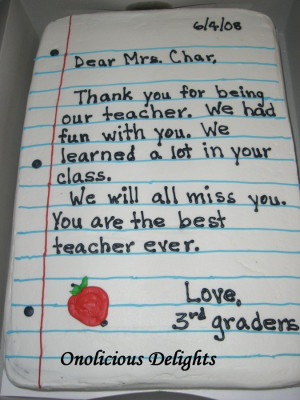 6/4/08
Dear Mrs. Char,
Thank you for being
our teacher. We had
fun with you. We
learned a lot in your
class.
We will all miss you.
You are the best
teacher ever.
Love,
3rd graders
Onolicious Delights